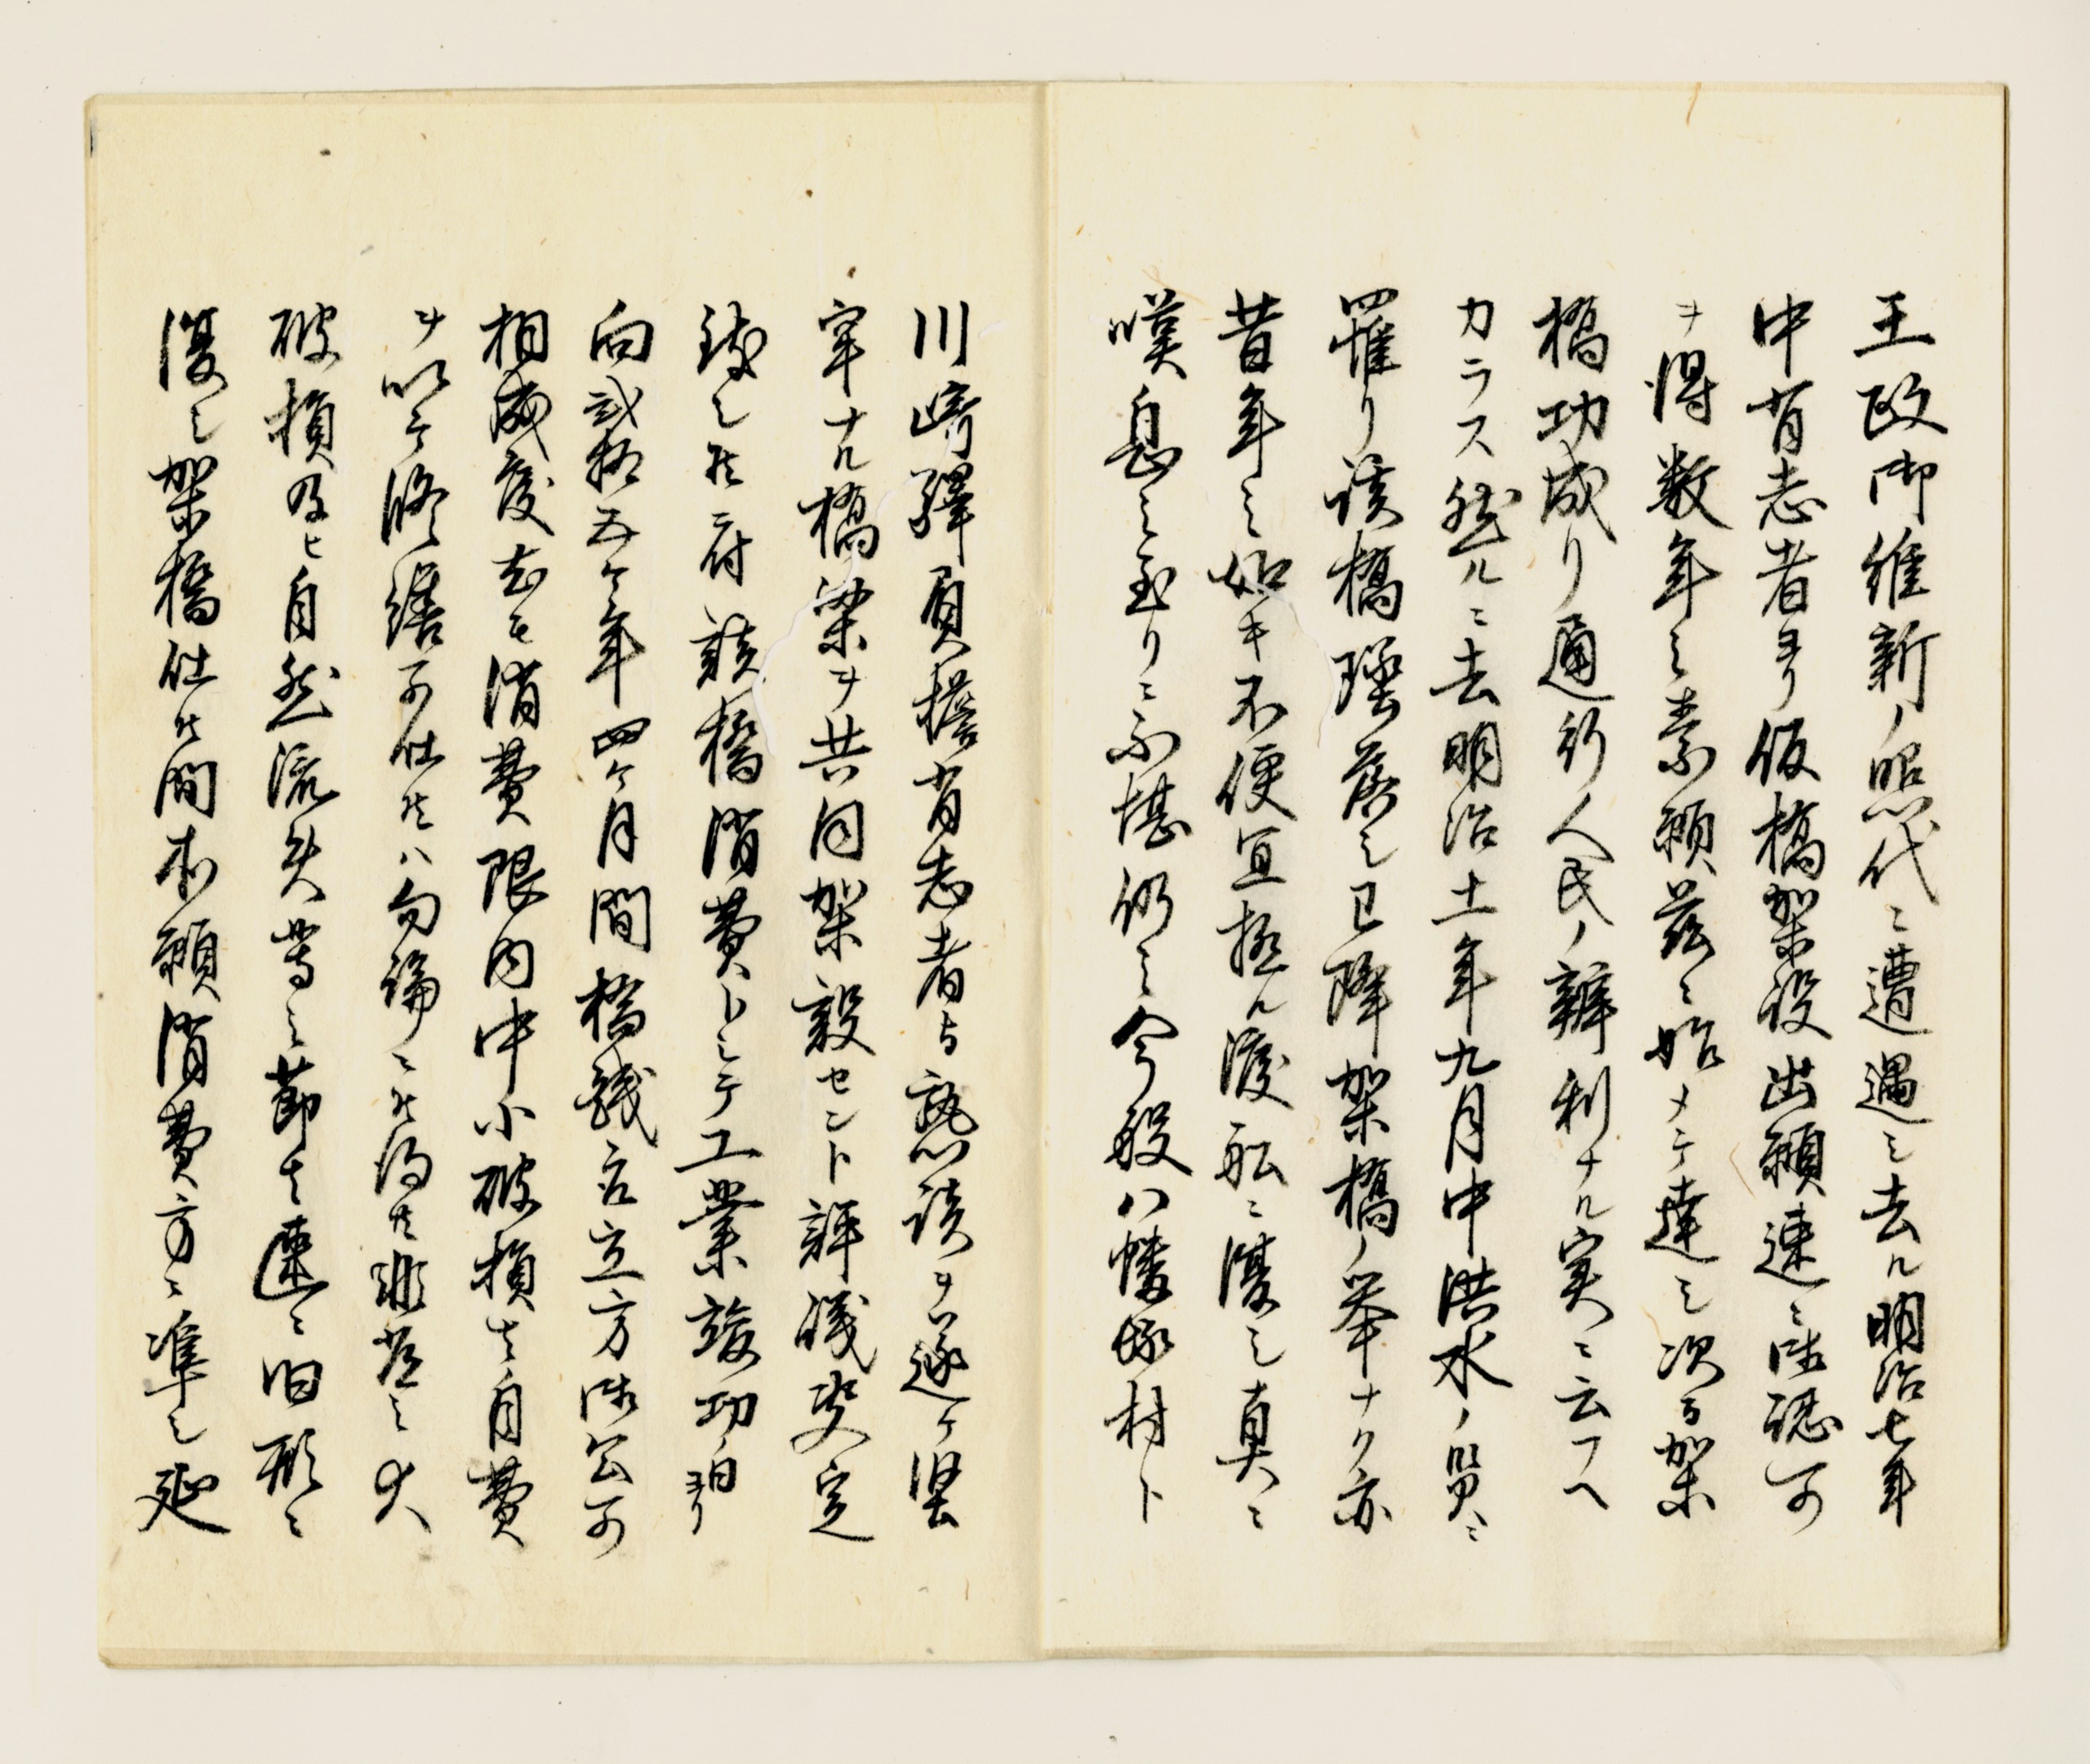 王政御維新ノ照代ニ遭遇シ去ル明治七年
中有志者ヨリ仮橋架設出願速ニ御認可
ヲ得数年之素願茲ニ始メテ達シ次テ架
橋功成リ通行人民ノ辨利ナル実ニ云フヘ
カラス然ルニ去明治十一年九月中洪水ノ災ニ
罹リ該橋墜落シ已降架橋ノ挙ナク亦
昔年之如キ不便宜極ル渡船ニ復シ真ニ
嘆息之至リニ不堪仍之今般八幡塚村ト
川崎驛員擔有志者与熟談ヲ遂ケ堅
牢ナル橋梁ヲ共同架設セント評議決定
致シ候ニ付該橋消費トシテ工業竣功ノ日ヨリ
向弐拾五ケ年四ケ月間橋銭取立方御公可
相成度尤モ消費限内中小破損ハ自費
ヲ以テ修繕可仕候ハ勿論ニ候得共非常之大
破損及ヒ自然流失等之節ハ速ニ旧形ニ
復シ架橋仕候間本願消費方ニ準シ延